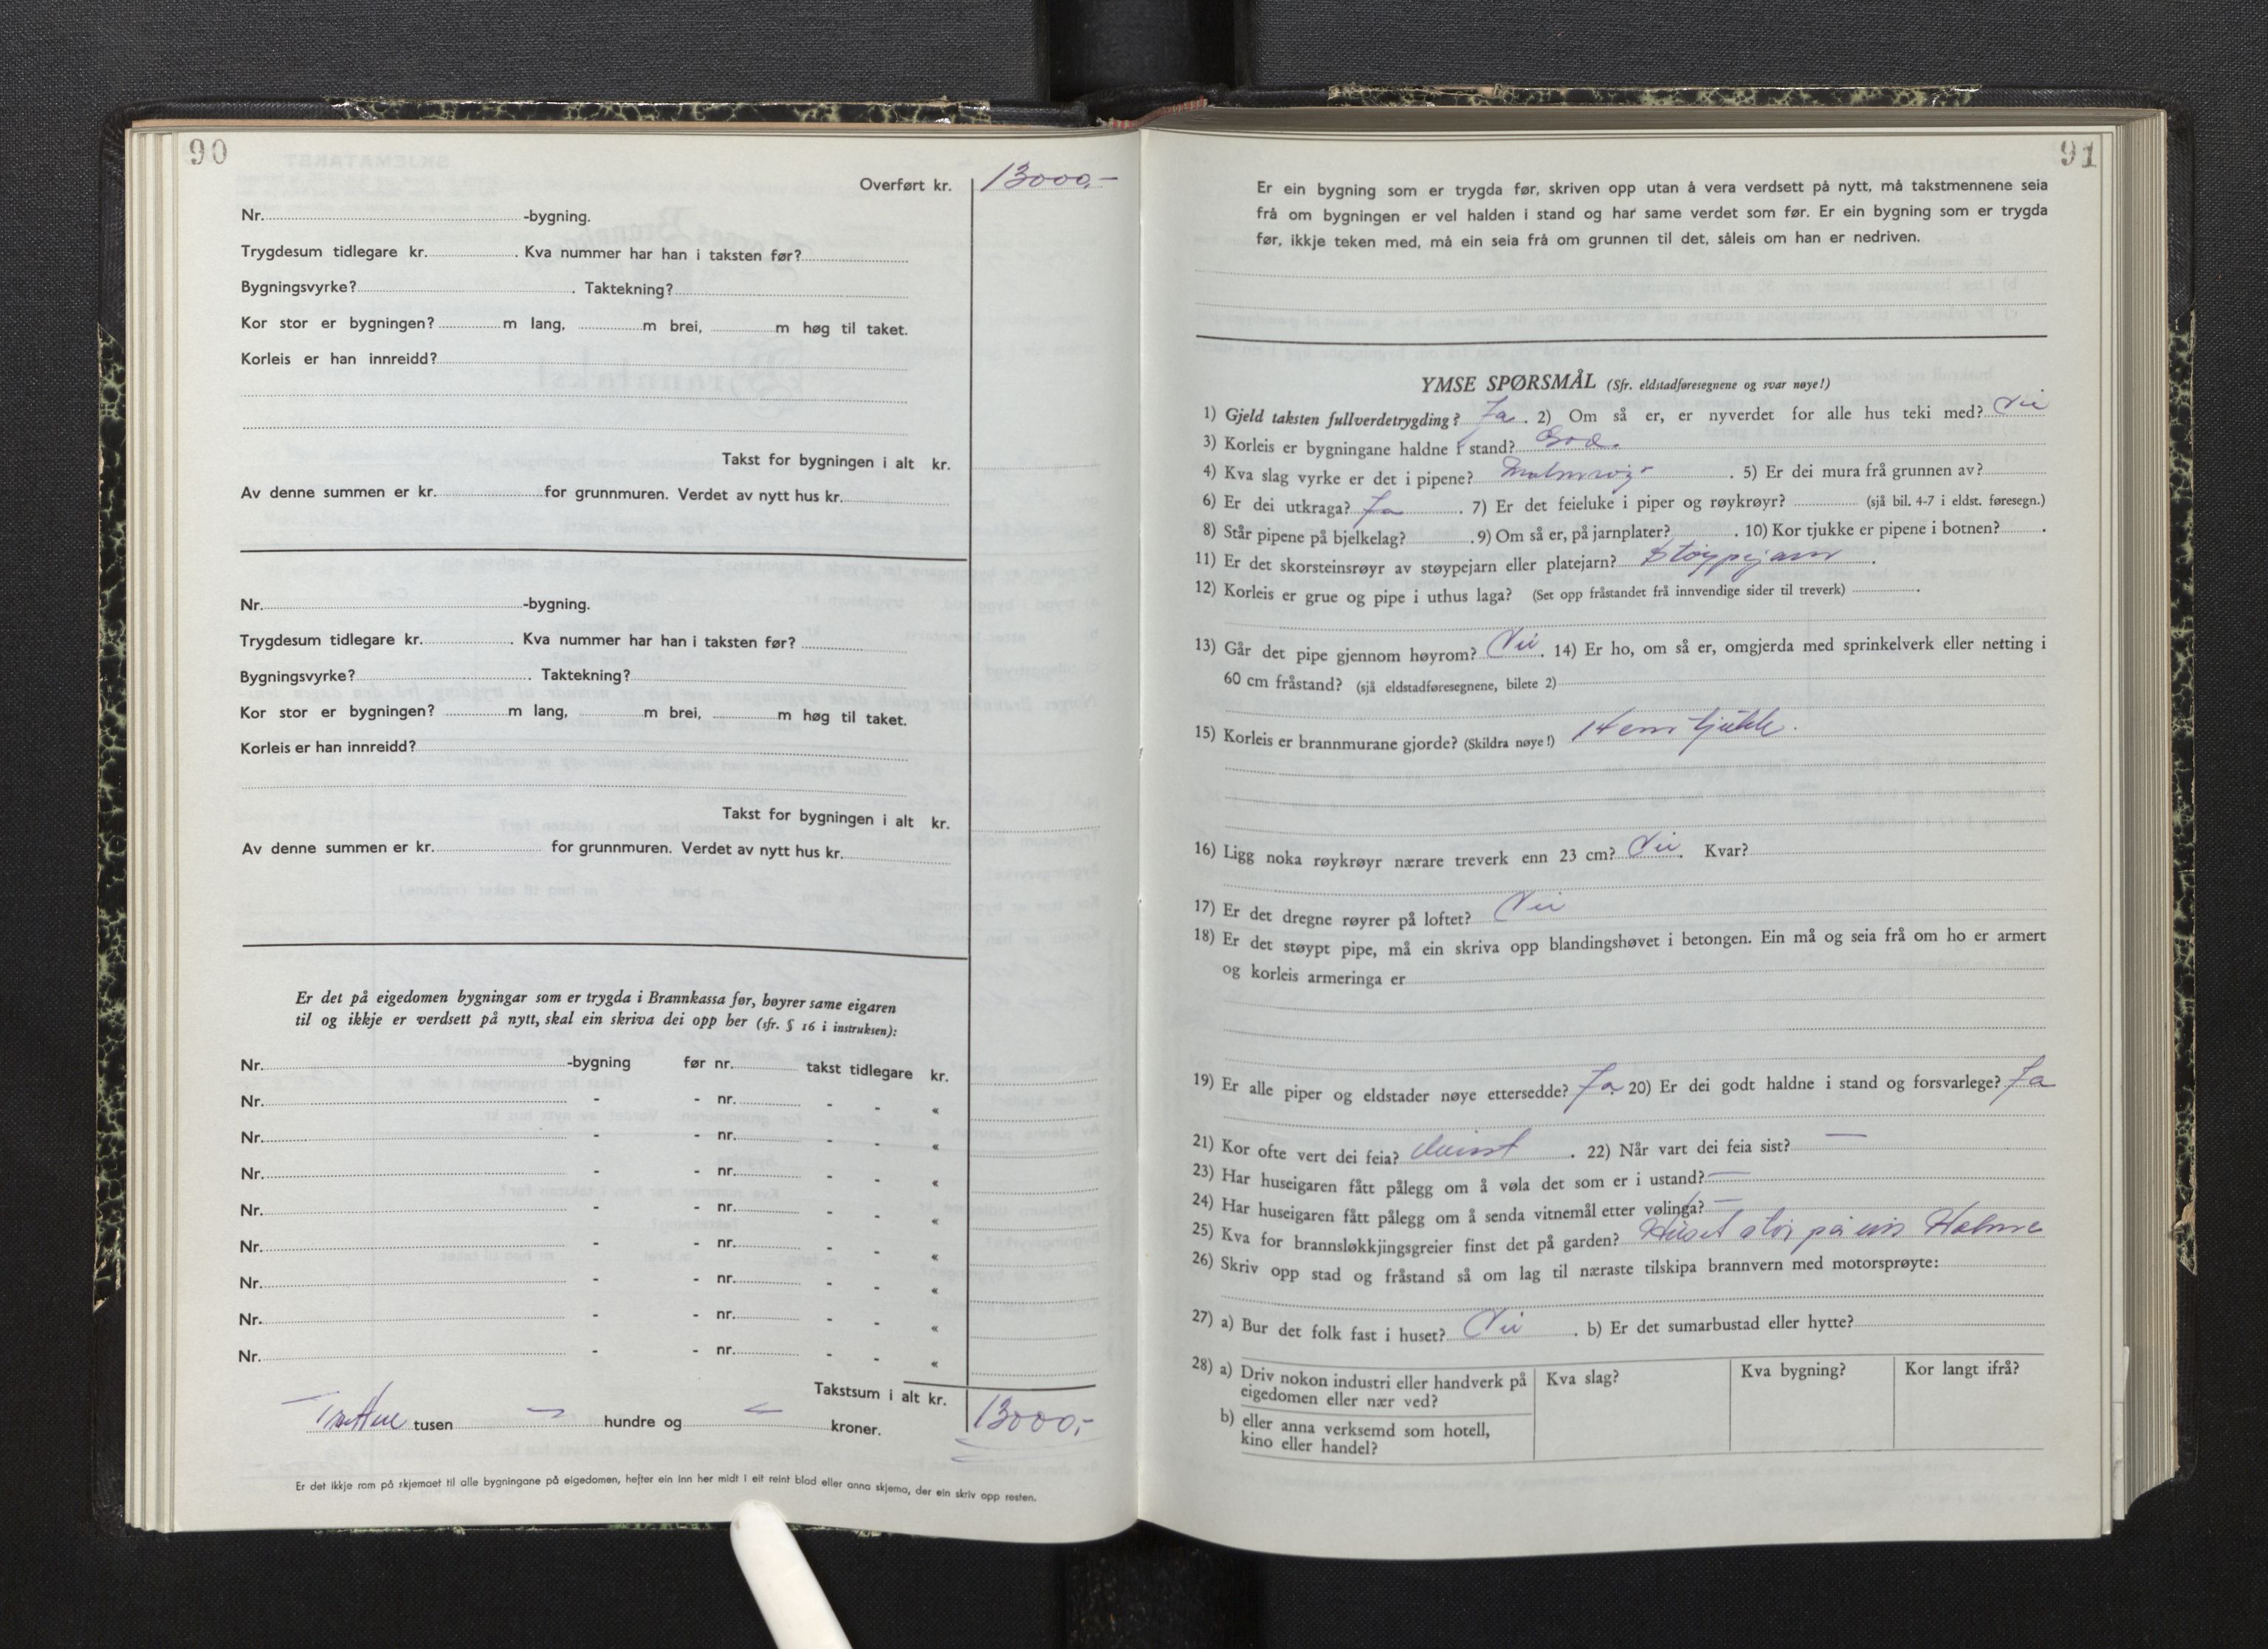 90
Overført kr. 13000,-
Nr. -bygning.
Trygdesum tidlegare kr. . Kva nummer har han i taksten før?
Bygningsvyrke? . Taktekning?
Kor stor er bygningen? m lang, m brei, m høg til taket.
Korleis er han innreidd?
Takst for bygningen i alt kr.
Av denne summen er kr. for grunnmuren. Verdet av nytt hus kr.
Nr. -bygning.
Trygdesum tidlegare kr. . Kva nummer har han i taksten før?
Bygningsvyrke? . Taktekning?
Kor stor er bygningen? m lang, m brei, m høg til taket.
Korleis er han innreidd?
Takst for bygningen i alt kr.
Av denne summen er kr. for grunnmuren. Verdet av nytt hus kr.
Er det på eigedomen bygningar som er trygda i Brannkassa før, høyrer same eigaren
til og ikkje er verdsett på nytt, skal ein skriva dei opp her (sfr. § 16 i instruksen):
Nr. -bygning før nr. takst tidlegare kr.
Nr. - - nr. - - «
Nr. - - nr. - - «
Nr. - - nr. - - «
Nr. - - nr. - - «
Nr. - - nr. - - «
Nr. - - nr. - - «
Nr. - - nr. - - «
Nr. - - nr. - - «
Takstsum i alt kr.
Tretten tusen - hundre og - kroner. 13000,-
Er det ikkje rom på skjemaet til alle bygningane på eigedomen, hefter ein inn her midt i eit reint blad eller anna skjema, der ein skriv opp resten.
91
Er ein bygning som er trygda før, skriven opp utan å vera verdsett på nytt, må takstmennene seia
frå om bygningen er vel halden i stand og har same verdet som før. Er ein bygning som er trygda
før, ikkje teken med, må ein seia frå om grunnen til det, såleis om han er nedriven.
YMSE SPØRSMÅL (Sfr. eldstadføresegnene og svar nøye!)
1) Gjeld taksten fullverdetrygding? Ja . 2) Om så er, er nyverdet for alle hus teki med? Nei
3) Korleis er bygningane haldne i stand? God.
4) Kva slag vyrke er det i pipene? . 5) Er dei mura frå grunnen av?
6) Er dei utkraga? Ja . 7) Er det feieluke i piper og røykrøyr? (sjå bil. 4-7 i eldst. føresegn.)
8) Står pipene på bjelkelag? . 9) Om så er, på jarnplater? . 10) Kor tjukke er pipene i botnen? .
11) Er det skorsteinsrøyr av støypejarn eller platejarn? Støypejarn .
12) Korleis er grue og pipe i uthus laga? (Set opp fråstandet frå innvendige sider til treverk) .
13) Går det pipe gjennom høyrom? Nei . 14) Er ho, om så er, omgjerda med sprinkelverk eller netting i
60 cm fråstand? (sjå eldstadføresegnene, bilete 2)
15) Korleis er brannmurane gjorde? (Skildra nøye!) 14 cm tjukke.
16) Ligg noka røykrøyr nærare treverk enn 23 cm? Nei . Kvar?
17) Er det dregne røyrer på loftet? Nei
18) Er det støypt pipe, må ein skriva opp blandingshøvet i betongen. Ein må og seia frå om ho er armert
og korleis armeringa er
19) Er alle piper og eldstader nøye ettersedde? Ja. 20) Er dei godt haldne i stand og forsvarlege? Ja
21) Kor ofte vert dei feia? . 22) Når vart dei feia sist? —
23) Har huseigaren fått pålegg om å vøla det som er i ustand? —
24) Har huseigaren fått pålegg om å senda vitnemål etter vølinga? —
25) Kva for brannsløkkjingsgreier finst det på garden? Huset på Holme
26) Skriv opp stad og fråstand så om lag til næraste tilskipa brannvern med motorsprøyte:
27) a) Bur det folk fast i huset? Nei . b) Er det sumarbustad eller hytte?
28) a) Driv nokon industri eller handverk på
eigedomen eller nær ved?
b) eller anna verksemd som hotell,
kino eller handel?
Kva slag?
Kva bygning?
Kor langt ifrå?